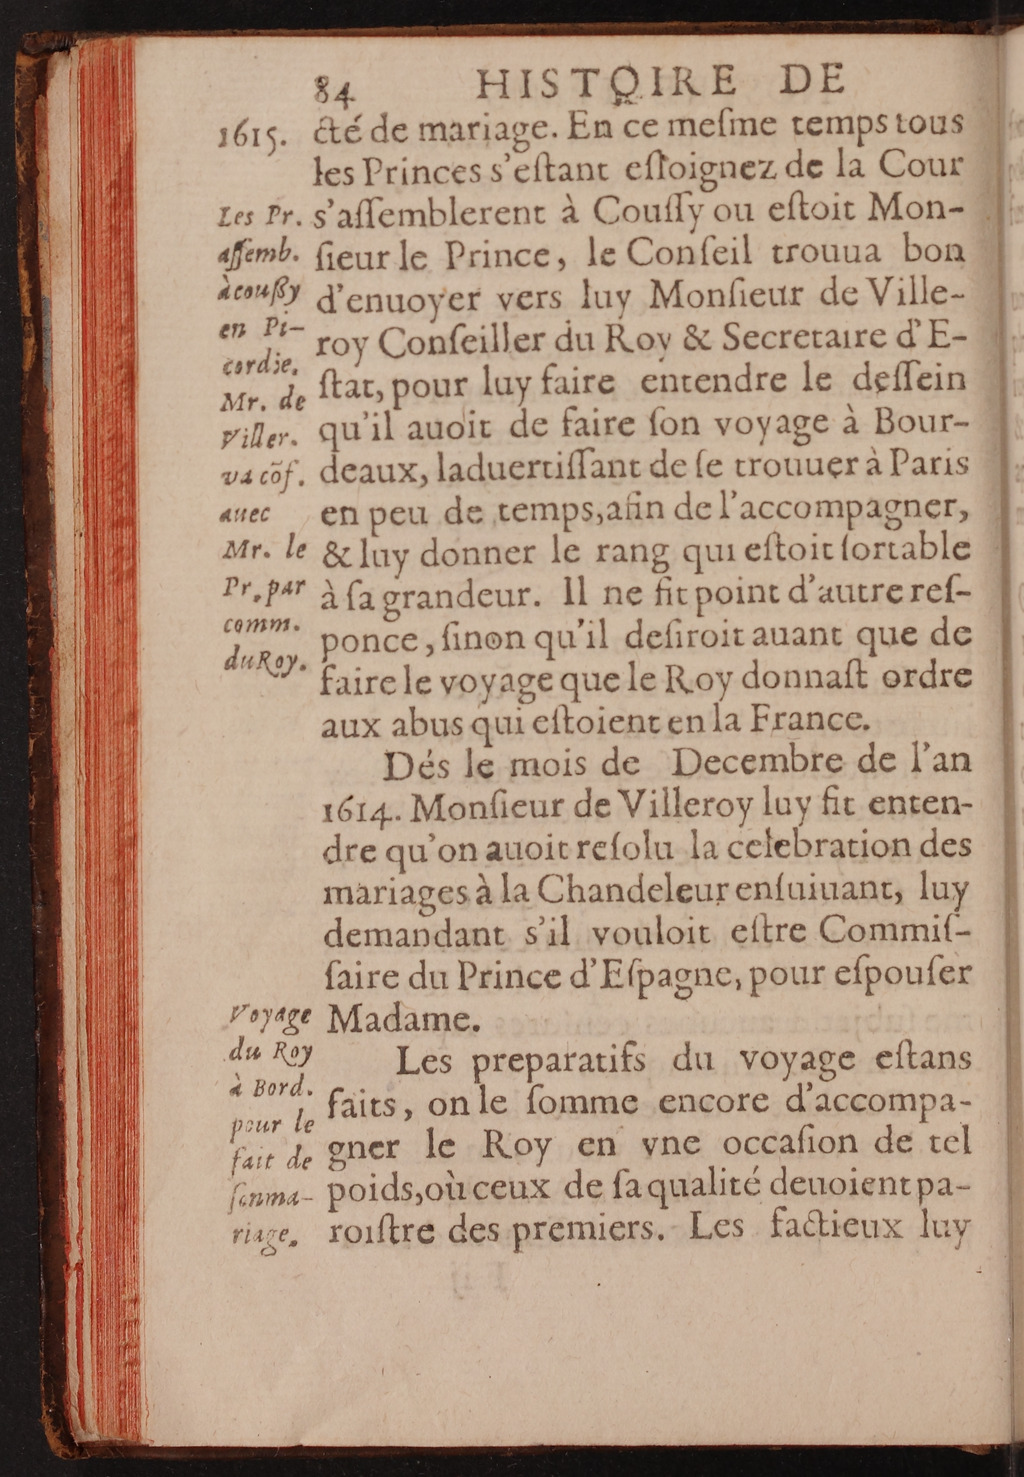 84 HISTOIRE DE
1615.
cté de mariage. En ce meſme temps tous
les Princes s'eſtant eſloignez de la Cour
s'aſſemblerent à Couſſy ou eſtoit Mon-
ſieur le Prince, le Conſeil trouua bon
d'enuoyer vers luy Monſieur de Ville-
roy Conſeiller du Roy & Secretaire d'E-
ſtat, pour luy faire entendre le deſſein
qu'il auoit de faire ſon voyage à Bour-
deaux, laduertiſſant de ſe trouuer à Paris
en peu de temps, afin de l'accompagner,
& luy donner le rang qui eſtoit ſortable
à ſa grandeur. Il ne fit point d'autre reſ-
ponce, ſinon qu'il deſiroit auant que de
faire le voyage que le Roy donnaſt ordre
aux abus qui eſtoient en la France.
Les Pr.
aſſemb.
àcouſſy
en Pi-
cardie,
Mr. de
Viller.
va cõf.
auec
Mr. le
Pr. par
comm.
du Roy.
Dés le mois de Decembre de l'an
1614. Monſieur de Villeroy luy fit enten-
dre qu'on auoit reſolu la celebration des
mariages à la Chandeleur enſuiuant, luy
demandant s'il vouloit eſtre Commiſ-
ſaire du Prince d'Eſpagne, pour eſpouſer
Madame.
Les preparatifs du voyage eſtans
faits, on le ſomme encore d'accompa-
gner le Roy en vne occaſion de tel
poids, où ceux de ſa qualité deuoient pa-
roiſtre des premiers. Les factieux luy
Voyage
du Roy
à Bord.
pour le
fait de
ſon ma-
riage.